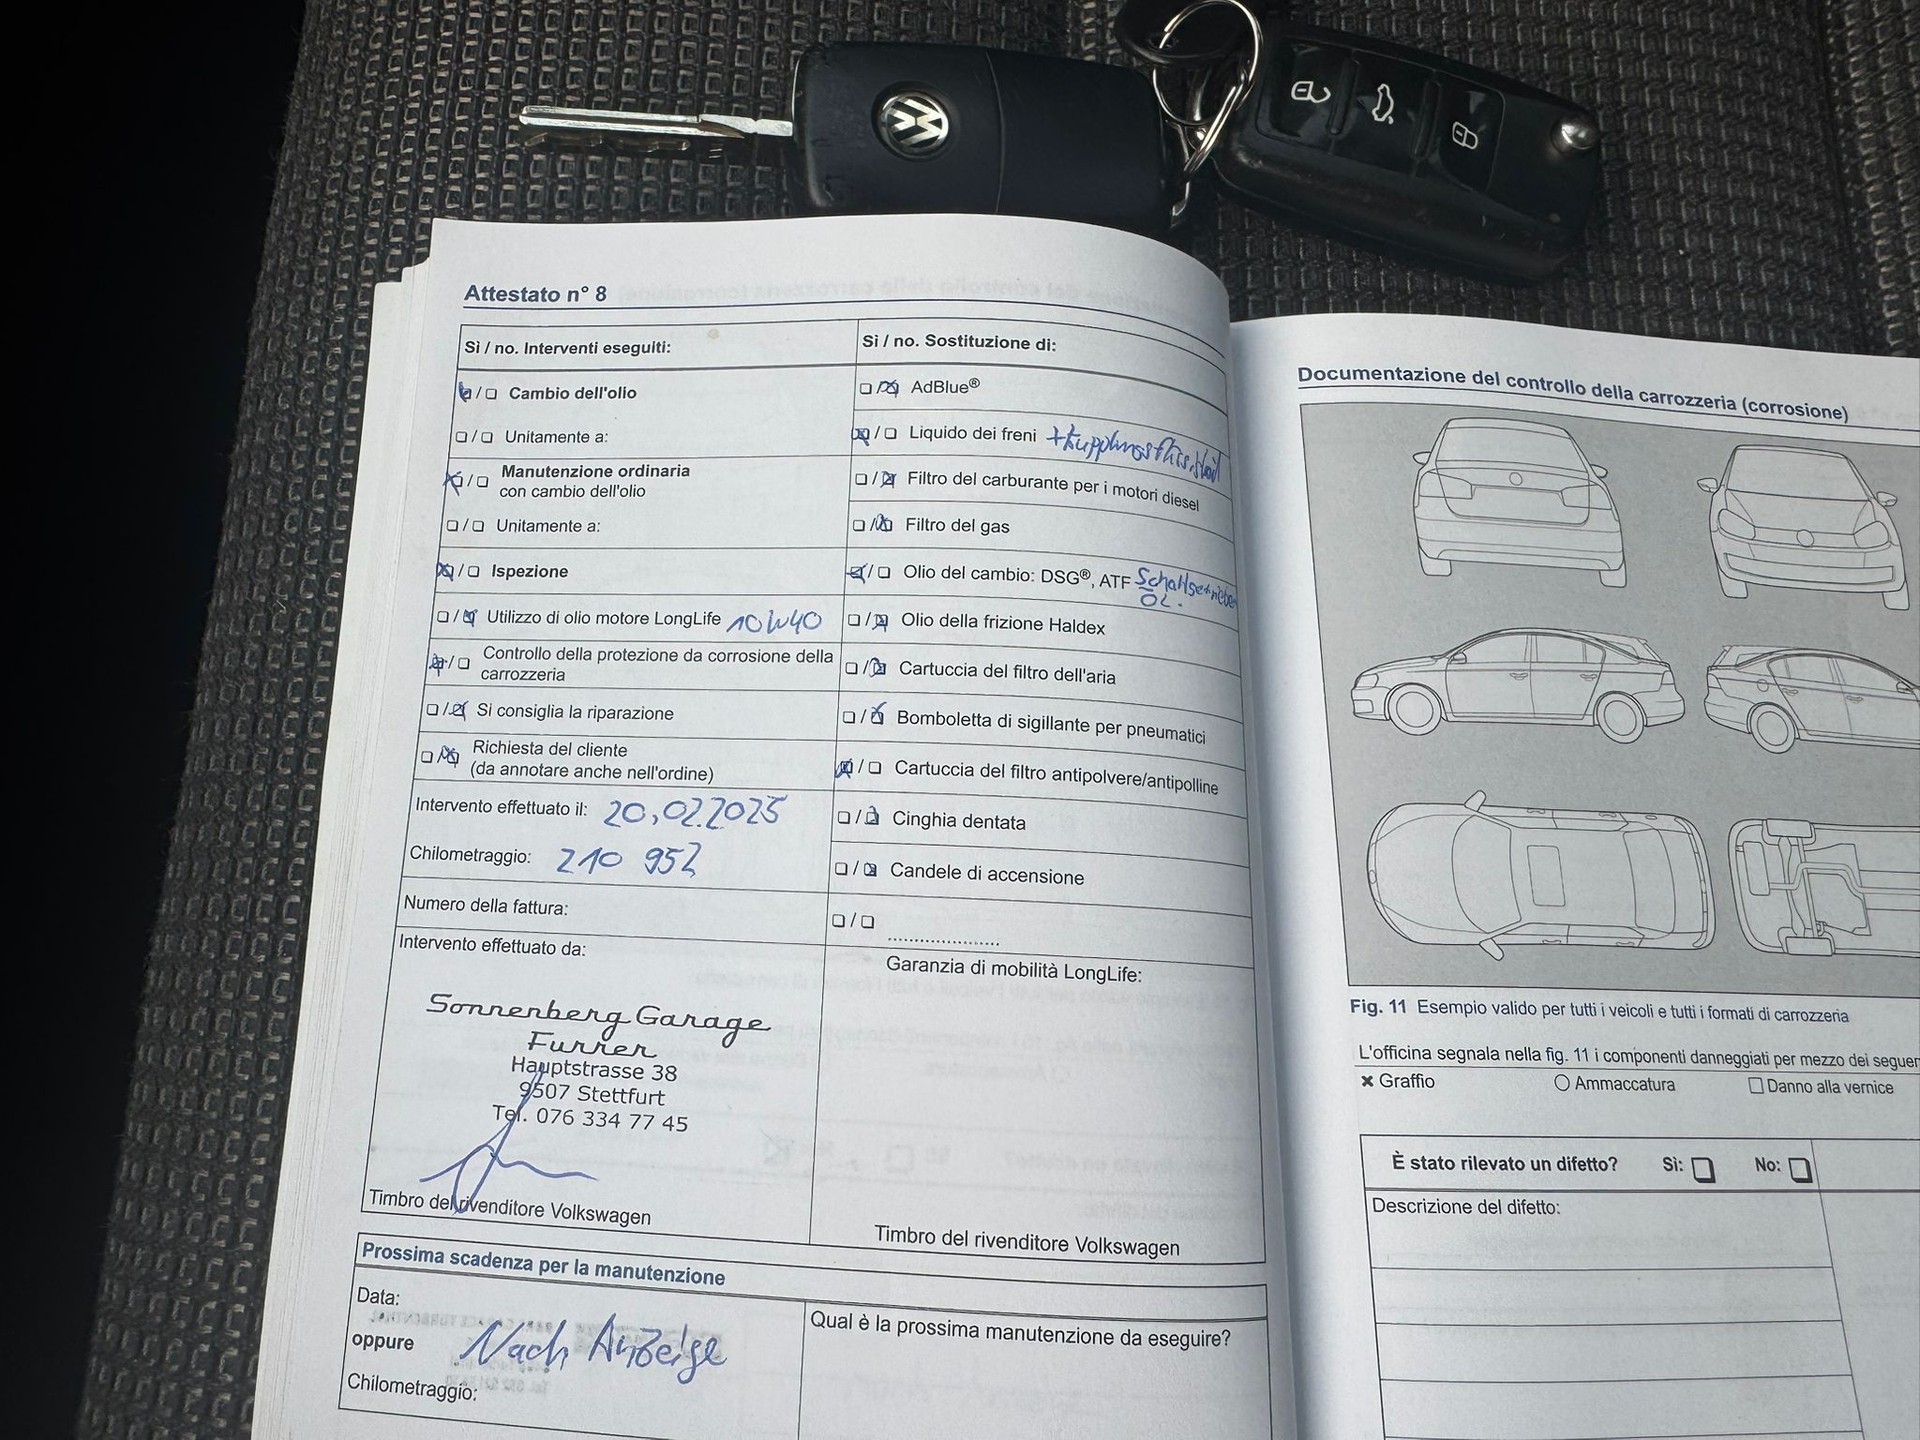 Attestato n° 8
Sì / no. Interventi eseguiti:
Sì / no. Sostituzione di:
☒ / ☐ Cambio dell'olio
☐ / ☐ Unitamente a:
☒ / ☐ Manutenzione ordinaria
con cambio dell'olio
☐ / ☐ Unitamente a:
☒ / ☐ Ispezione
☐ / ☒ Utilizzo di olio motore LongLife 10W40
☒ / ☐ Controllo della protezione da corrosione della
carrozzeria
☐ / ☒ Si consiglia la riparazione
☐ / ☒ Richiesta del cliente
(da annotare anche nell'ordine)
Intervento effettuato il: 20.02.2025
Chilometraggio: 210 952
Numero della fattura:
Intervento effettuato da:
Sonnenberg Garage
Furrer
Hauptstrasse 38
9507 Stettfurt
Tel. 076 334 77 45
Timbro del rivenditore Volkswagen
☐ / ☒ AdBlue®
☒ / ☐ Liquido dei freni
☐ / ☒ Filtro del carburante per i motori diesel
☐ / ☒ Filtro del gas
☒ / ☐ Olio del cambio: DSG®, ATF
ÖL.
☐ / ☒ Olio della frizione Haldex
☐ / ☒ Cartuccia del filtro dell'aria
☐ / ☒ Bomboletta di sigillante per pneumatici
☒ / ☐ Cartuccia del filtro antipolvere/antipolline
☐ / ☒ Cinghia dentata
☐ / ☒ Candele di accensione
☐ / ☐ .....................
Garanzia di mobilità LongLife:
Timbro del rivenditore Volkswagen
Prossima scadenza per la manutenzione
Data:
oppure Nach Anzeige
Chilometraggio:
Qual è la prossima manutenzione da eseguire?
Documentazione del controllo della carrozzeria (corrosione)
Fig. 11 Esempio valido per tutti i veicoli e tutti i formati di carrozzeria
L'officina segnala nella fig. 11 i componenti danneggiati per mezzo dei
× Graffio ○ Ammaccatura ☐ Danno alla vernice
È stato rilevato un difetto? Sì: ☐ No: ☐
Descrizione del difetto: